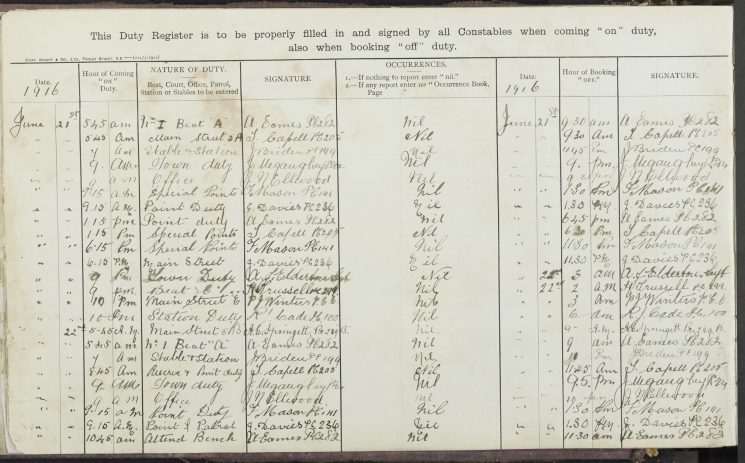 This Duty Register is to be properly filled in and signed by all Constables when coming "on" duty,
also when booking "off" duty.
Date. 1916 Hour of Coming "on" Duty. NATURE OF DUTY. Beat, Court, Office, Patrol, Station or Stables to be entered SIGNATURE OCCURRENCES. 1.—If nothing to report enter "nil." 2.—If any report enter see "Occurrence Book, Page Date. 1916 Hour of Booking "OFF." SIGNATURE.
June 21st 5.45 am No I Beat A A Eames PC 282 Nil June 21st 9.30 am A Eames PC 282
" " 5.45 am Main Street T Capell PC 205 Nil " " 9.30 am T Capell PC 205
" " 7 am Stable & Station J Briden PC 199 Nil " " J Briden PC 199
" " 9 am Town duty Nil " " 9 pm
" " 9 am Office J N Ellwood Nil " " J N Ellwood
" " 9.15 am Special Points T Mason PC 141 Nil " " 1.30 pm T Mason PC 141
" " 9.15 am Point Duty J Davies PC 236 Nil " " 1.30 pm J Davies PC 236
" " 1.15 pm Point duty A Eames PC 282 Nil " " 6.45 pm A Eames PC 282
" " 1.15 pm Special Points T Capell PC 205 Nil " " pm T Capell PC 205
" " 6.15 pm Special Points T Mason PC 141 Nil " " 11.30 pm T Mason PC 141
" " 6.15 pm Main Street J Davies PC 236 Nil " " 11.30 pm J Davies PC 236
" " 9 pm Town Duty Nil " 22nd 3 am
" " 9 pm Beat E Trussell Nil " 22nd 2 am Trussell
" " 10 pm Main Street E Winters PC Nil " " 3 am Winters PC
" " 10 pm Station Duty Cade PC 100 Nil " " 6 am Cade PC 100
" 22nd 5.45 am Main Street Springett Nil " " 9 am Springett
" " 5.45 am No 1 Beat "A" A Eames PC 282 Nil " " 9 am A Eames PC 282
" " 7 am Stable & Station J Briden PC 199 Nil " " 10 pm J Briden PC 199
" " 8.45 am & Point duty T Capell PC 205 Nil " " 11.45 am T Capell PC 205
" " 9 am Town duty Nil " " pm
" " 9 am Office J N Ellwood nil " " J N Ellwood
" " 9.15 am Point Duty T Mason PC 141 Nil " " 1.30 pm T Mason PC 141
" " 9.15 am Point & Patrol J Davies PC 236 Nil " " 1.30 pm J Davies PC 236
" " 10.45 am Attend Bench A Eames PC 282 Nil " " 11.30 am A Eames PC 282